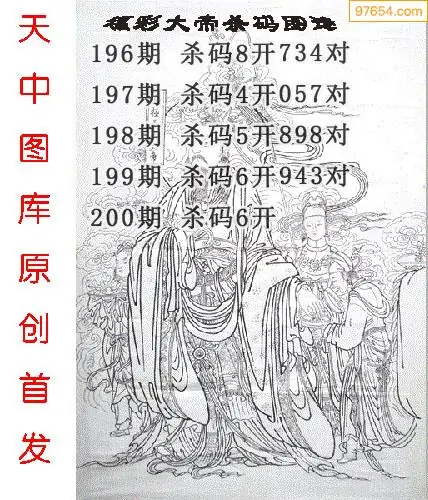 97654.com
福彩大帝杀码图
196期 杀码8开734对
197期 杀码4开057对
198期 杀码5开898对
199期 杀码6开943对
200期 杀码6开
天中图库原创首发